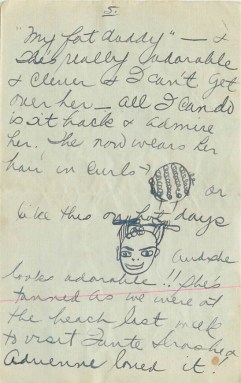 5.
"My fat daddy" — &
She's really adorable
& clever & I can't get
over her — all I can do
is sit back & admire
her. She now wears her
hair in curls→
or
like this on hot days
and she
looks adorable!! She's
tanned as we were at
the beach last week
to visit Tante
Adrienne loved it!